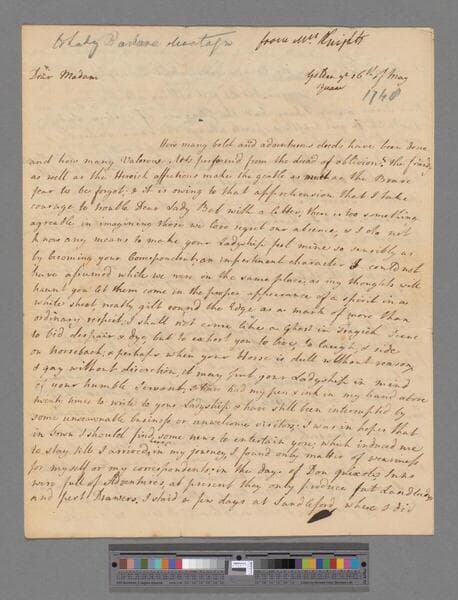 to Lady Barbara Montagu from Mrs Knight
Dear Madam
16th of May
1740
How many bold and adventurous deeds have been Done
and how many Valorous Acts preserved from the dread of oblivion, the friendly
as well as the Heroick affections make the gentle as much as the Brave
fear to be forgot, & it is owing to that apprehension that I take
courage to trouble Dear Lady Bab with a letter, there is too something
agreable in imagining those we love regret our absence, & I do not
know any means to make your Ladyship feel mine so sensibly as
by becoming your Correspondent; an impertinent character I could not
have assumed while we were in the same place; as my thoughts will
haunt you let them come in the proper appearance of a spirit in a
white sheet, neatly gilt round the Edge as a mark of more than
ordinary respect; I shall not come like a Ghost in Tragick Scene
to bid despair & dye, but to exhort you to live, to laugh, & ride
on Horseback, & perhaps when your Horse is dull without reason,
& gay without discretion, it may put your Ladyship in mind
of your humble Servant, I have had my pen & ink in my hand above
twenty times to write to your Ladyship & have still been interrupted by
some unseasonable business or unwelcome visitors; I was in hopes that
in Town I should find some news to entertain you, which induced me
to stay till I arrived, in my journey I found only matter of weariness
for myself or my correspondents; in the days of Don Quixote Inns
were full of Adventures, at present they only produce fat Landladys
and pert Drawers, I staid a few days at Sandleford, where I did